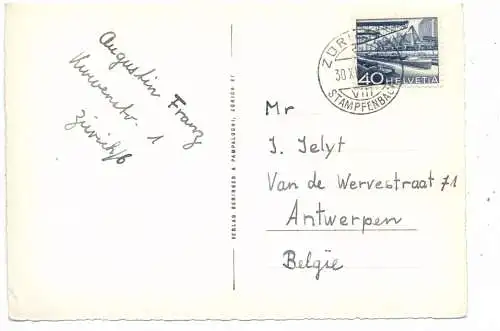 Augustin Franz
1
Zürich/6
VERLAG BERINGER & PAMPALUCHI, ZÜRICH 47
40 HELVETIA
30.X
VIII
Mr
J. Jelyt
Van de Wervestraat 71
Antwerpen
Belgïe